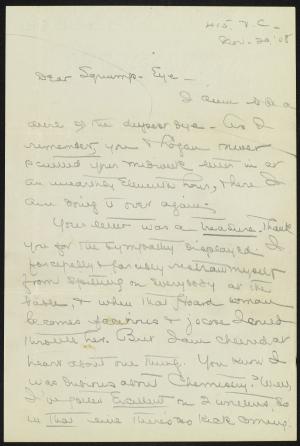 415. V. C. -
Nov. 20, '08
Dear Squimp-Eye -
I am
of the deepest dye - As I
remember, you & Logan never
your midweek letter in at
an unearthly eleventh hour, & here I
am doing it over again.
Your letter was a treasure. Thank
you for the sympathy displayed. I
forcefully & forcibly restrain myself
from spitting on everybody at the
table, & when that Board woman
becomes facetious & jocose I could
throttle her. But I am cheered at
heart about one thing. You know I
was dubious about Chemistry? Well,
I've gotten Excellent on 2 writtens, so
in that line there's no kick coming.